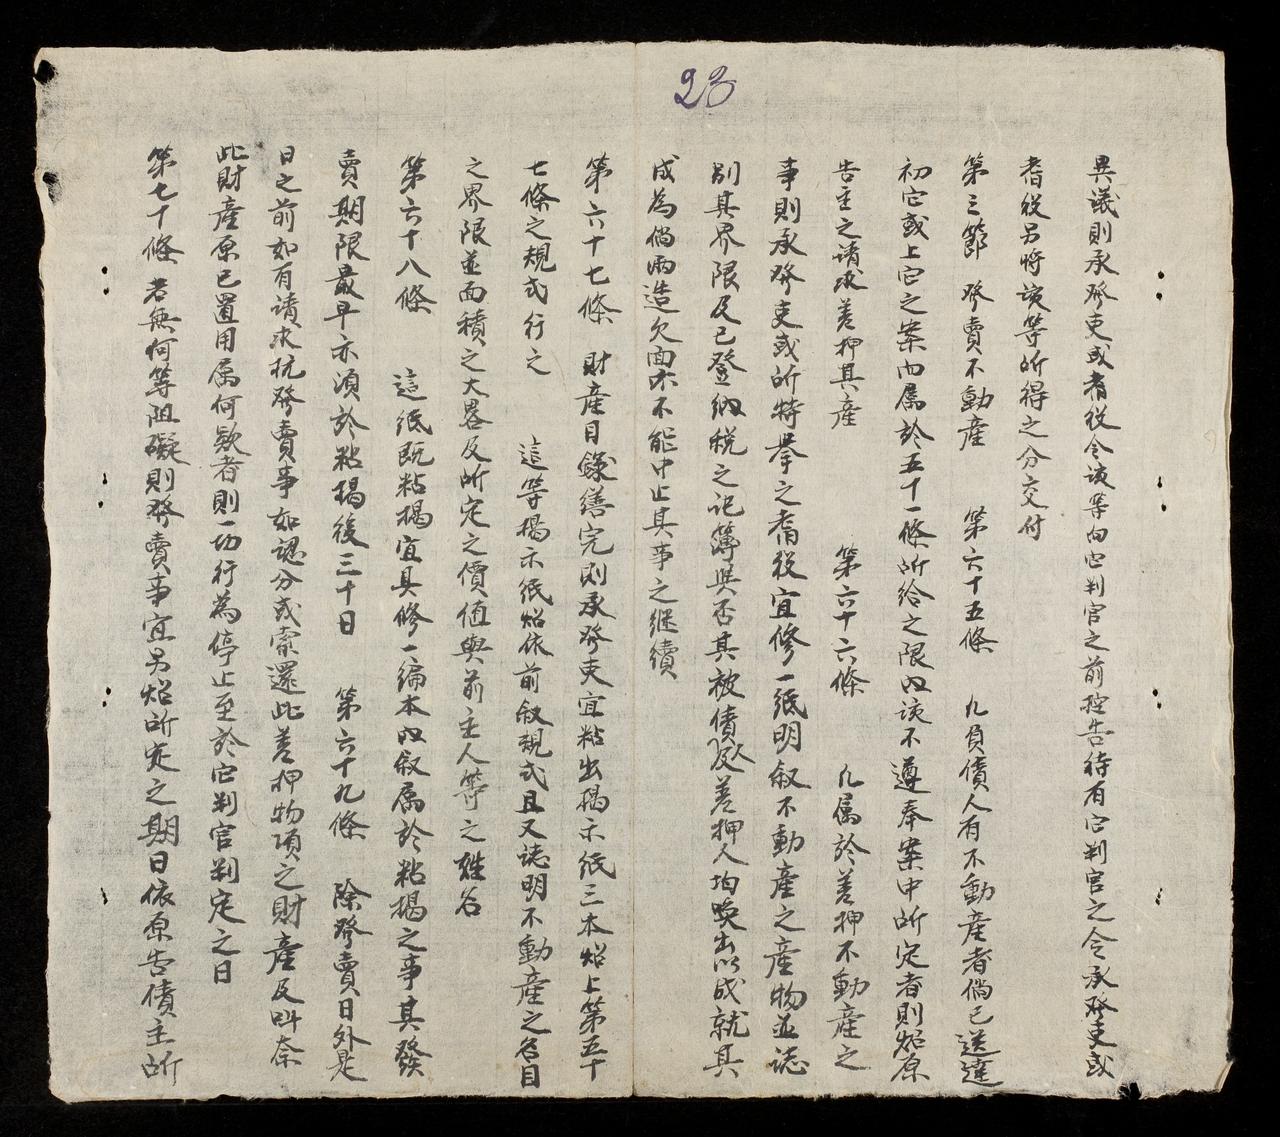 23
異議則承發吏或耆役令該等向它判官之前控告待有它判官之令承發吏或
耆役另將該等所得之分交付
第三節 發賣不動產 第六十五條 凡負債人有不動產者倘已送達
初它或上它之案內属於五十一條所給之限內該不遵奉案中所定者則炤原
告主之請求差押其產 第六十六條 凡属於差押不動產之
事則承發吏或所特擧之耆役宜修一紙明叙不動產之產物並誌
別其界限及已登納稅之記簿與否其被債人及差押人均喚出以成就其
成為倘兩造欠面亦不能中止其事之継續
第六十七條 財產目錄繕完則承發吏宜粘出揭示紙三本炤上第五十
七條之規式行之 這等揭示紙炤依前叙規式且又誌明不動產之名目
之界限並面積之大畧及所定之價值與前主人等之姓名
第六十八條 這紙既粘揭宜具修一編本內叙属於粘揭之事其發
賣期限最早亦須於粘揭後三十日 第六十九條 除發賣日外是
日之前如有請求抗發賣事如認分或索還此差押物項之財產及呌奈
此財產原已置用属何欵者則一切行為停止至於它判官判定之日
第七十條 若無何等阻礙則發賣事宜另炤所定之期日依原告債主所